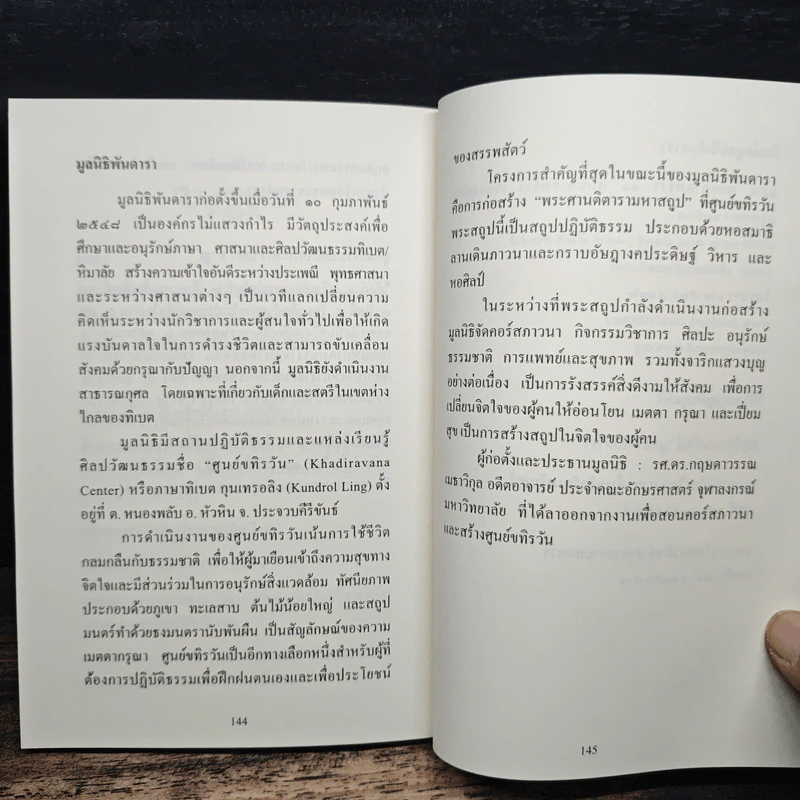 มูลนิธิพันดารา
มูลนิธิพันดาราก่อตั้งขึ้นเมื่อวันที่ ๑๐ กุมภาพันธ์
๒๕๔๘ เป็นองค์กรไม่แสวงกำไร มีวัตถุประสงค์เพื่อ
ศึกษาและอนุรักษ์ภาษา ศาสนาและศิลปวัฒนธรรมทิเบต/
หิมาลัย สร้างความเข้าใจอันดีระหว่างประเพณี พุทธศาสนา
และระหว่างศาสนาต่างๆ เป็นเวทีแลกเปลี่ยนความ
คิดเห็นระหว่างนักวิชาการและผู้สนใจทั่วไปเพื่อให้เกิด
แรงบันดาลใจในการดำรงชีวิตและสามารถขับเคลื่อน
สังคมด้วยกรุณากับปัญญา นอกจากนี้ มูลนิธิยังดำเนินงาน
สาธารณกุศล โดยเฉพาะที่เกี่ยวกับเด็กและสตรีในเขตห่าง
ไกลของทิเบต
มูลนิธิมีสถานปฏิบัติธรรมและแหล่งเรียนรู้
ศิลปวัฒนธรรมชื่อ “ศูนย์ขทิรวัน” (Khadiravana
Center) หรือภาษาทิเบต กุนเทรอลิง (Kundrol Ling) ตั้ง
อยู่ที่ ต. หนองพลับ อ. หัวหิน จ. ประจวบคีรีขันธ์
การดำเนินงานของศูนย์ขทิรวันเน้นการใช้ชีวิต
กลมกลืนกับธรรมชาติ เพื่อให้ผู้มาเยือนเข้าถึงความสุขทาง
จิตใจและมีส่วนร่วมในการอนุรักษ์สิ่งแวดล้อม ทัศนียภาพ
ประกอบด้วยภูเขา ทะเลสาบ ต้นไม้น้อยใหญ่ และสถูป
มนตร์ทำด้วยธงมนตรานับพันผืน เป็นสัญลักษณ์ของความ
เมตตากรุณา ศูนย์ขทิรวันเป็นอีกทางเลือกหนึ่งสำหรับผู้ที่
ต้องการปฏิบัติธรรมเพื่อฝึกฝนตนเองและเพื่อประโยชน์
144
ของสรรพสัตว์
โครงการสำคัญที่สุดในขณะนี้ของมูลนิธิพันดารา
คือการก่อสร้าง “พระศานติตารามหาสถูป” ที่ศูนย์ขทิรวัน
พระสถูปนี้เป็นสถูปปฏิบัติธรรม ประกอบด้วยหอสมาธิ
ลานเดินภาวนาและกราบอัษฎางคประดิษฐ์ วิหาร และ
หอศิลป์
ในระหว่างที่พระสถูปกำลังดำเนินงานก่อสร้าง
มูลนิธิจัดคอร์สภาวนา กิจกรรมวิชาการ ศิลปะ อนุรักษ์
ธรรมชาติ การแพทย์และสุขภาพ รวมทั้งจาริกแสวงบุญ
อย่างต่อเนื่อง เป็นการรังสรรค์สิ่งดีงามให้สังคม เพื่อการ
เปลี่ยนจิตใจของผู้คนให้อ่อนโยน เมตตา กรุณา และเปี่ยม
สุข เป็นการสร้างสถูปในจิตใจของผู้คน
ผู้ก่อตั้งและประธานมูลนิธิ : รศ.ดร.กฤษดาวรรณ
เมธาวิกุล อดีตอาจารย์ ประจำคณะอักษรศาสตร์ จุฬาลงกรณ์
มหาวิทยาลัย ที่ได้ลาออกจากงานเพื่อสอนคอร์สภาวนา
และสร้างศูนย์ขทิรวัน
145